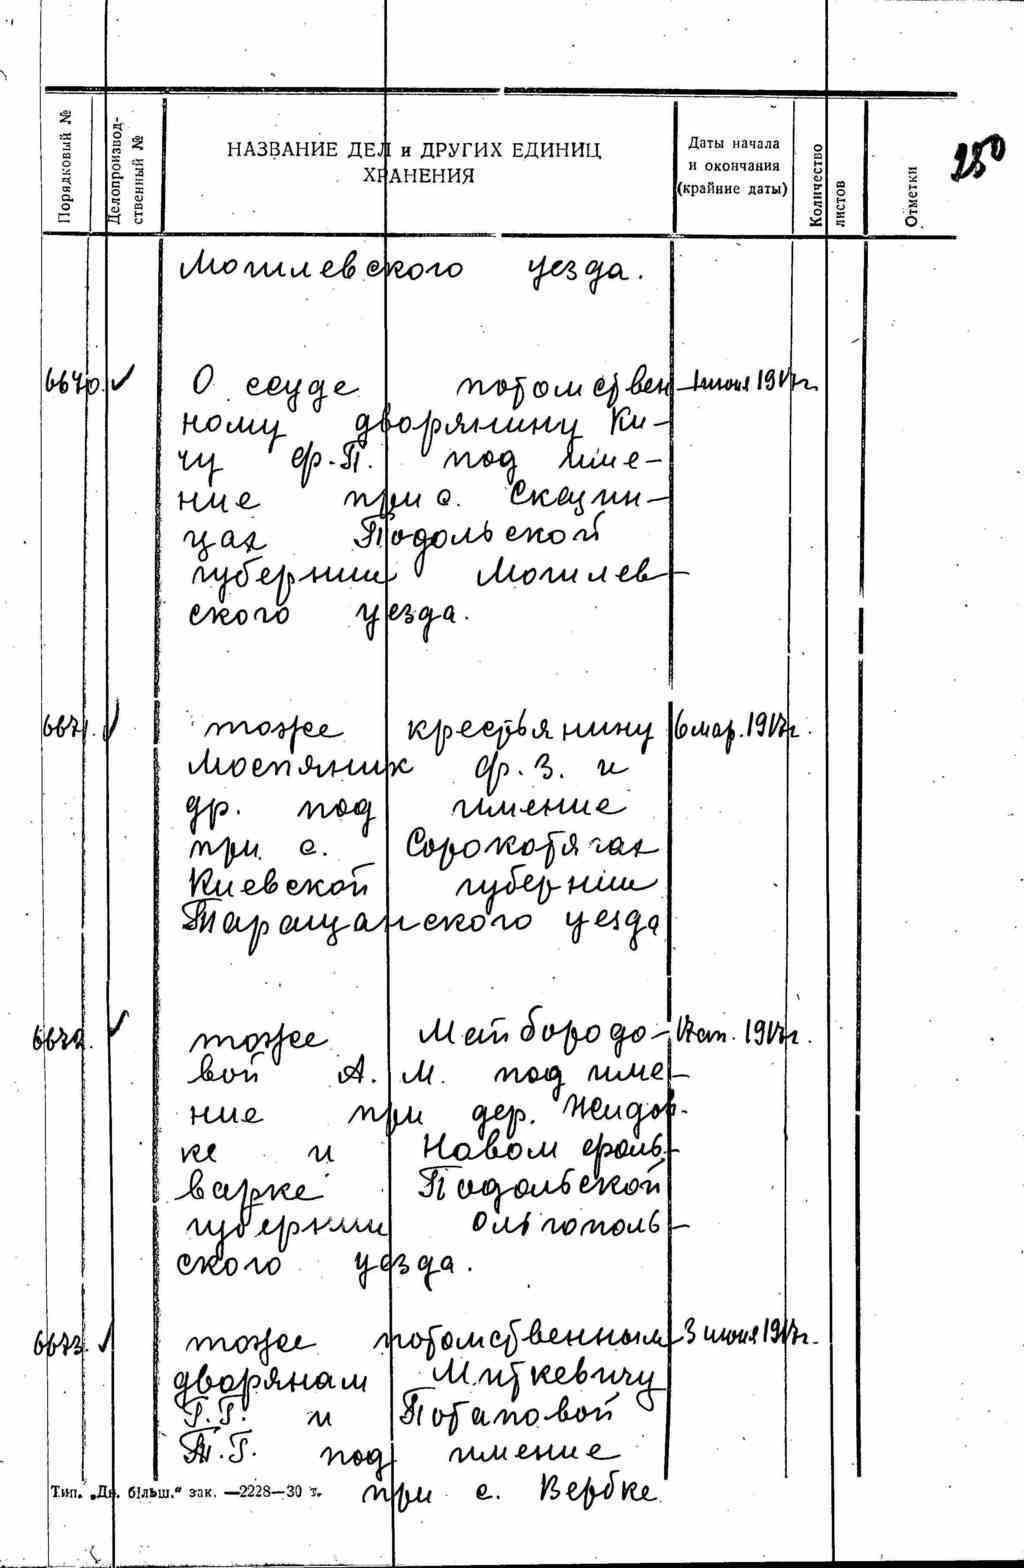 250
Порядковый №
Делопроизвод-
ственный №
НАЗВАНИЕ ДЕЛ и ДРУГИХ ЕДИНИЦ
ХРАНЕНИЯ
Даты начала
и окончания
(крайние даты)
Количество
листов
Отметки
Могилевского уезда.
6670. ✓ О ссуде потомствен 1917г.
ному дворянину Ки-
чу Ф.П. под име-
ние при с. Скаzин-
цах Подольской
губернии Могилев-
ского уезда.
6671. ✓ тоже крестьянину 6 мар. 1917г.
Моспяник Ф.З. и
др. под имение
при с. Сорокотягах
Киевской губернии
Таращанского уезда
6672. ✓ тоже Майбородо- 17 ап. 1917г.
вой А.М. под име-
ние при дер. Жидов-
ке и Новом фоль-
варке Подольской
губернии Ольгополь-
ского уезда.
6673. ✓ тоже потомственным 3 июня 1917г.
дворянам Миткевичу
Г.Г. и Потаповой
Т.Г. под имение
при с. Вербке
Тип. „Дн. більш.“ зак. —2228—30 т.